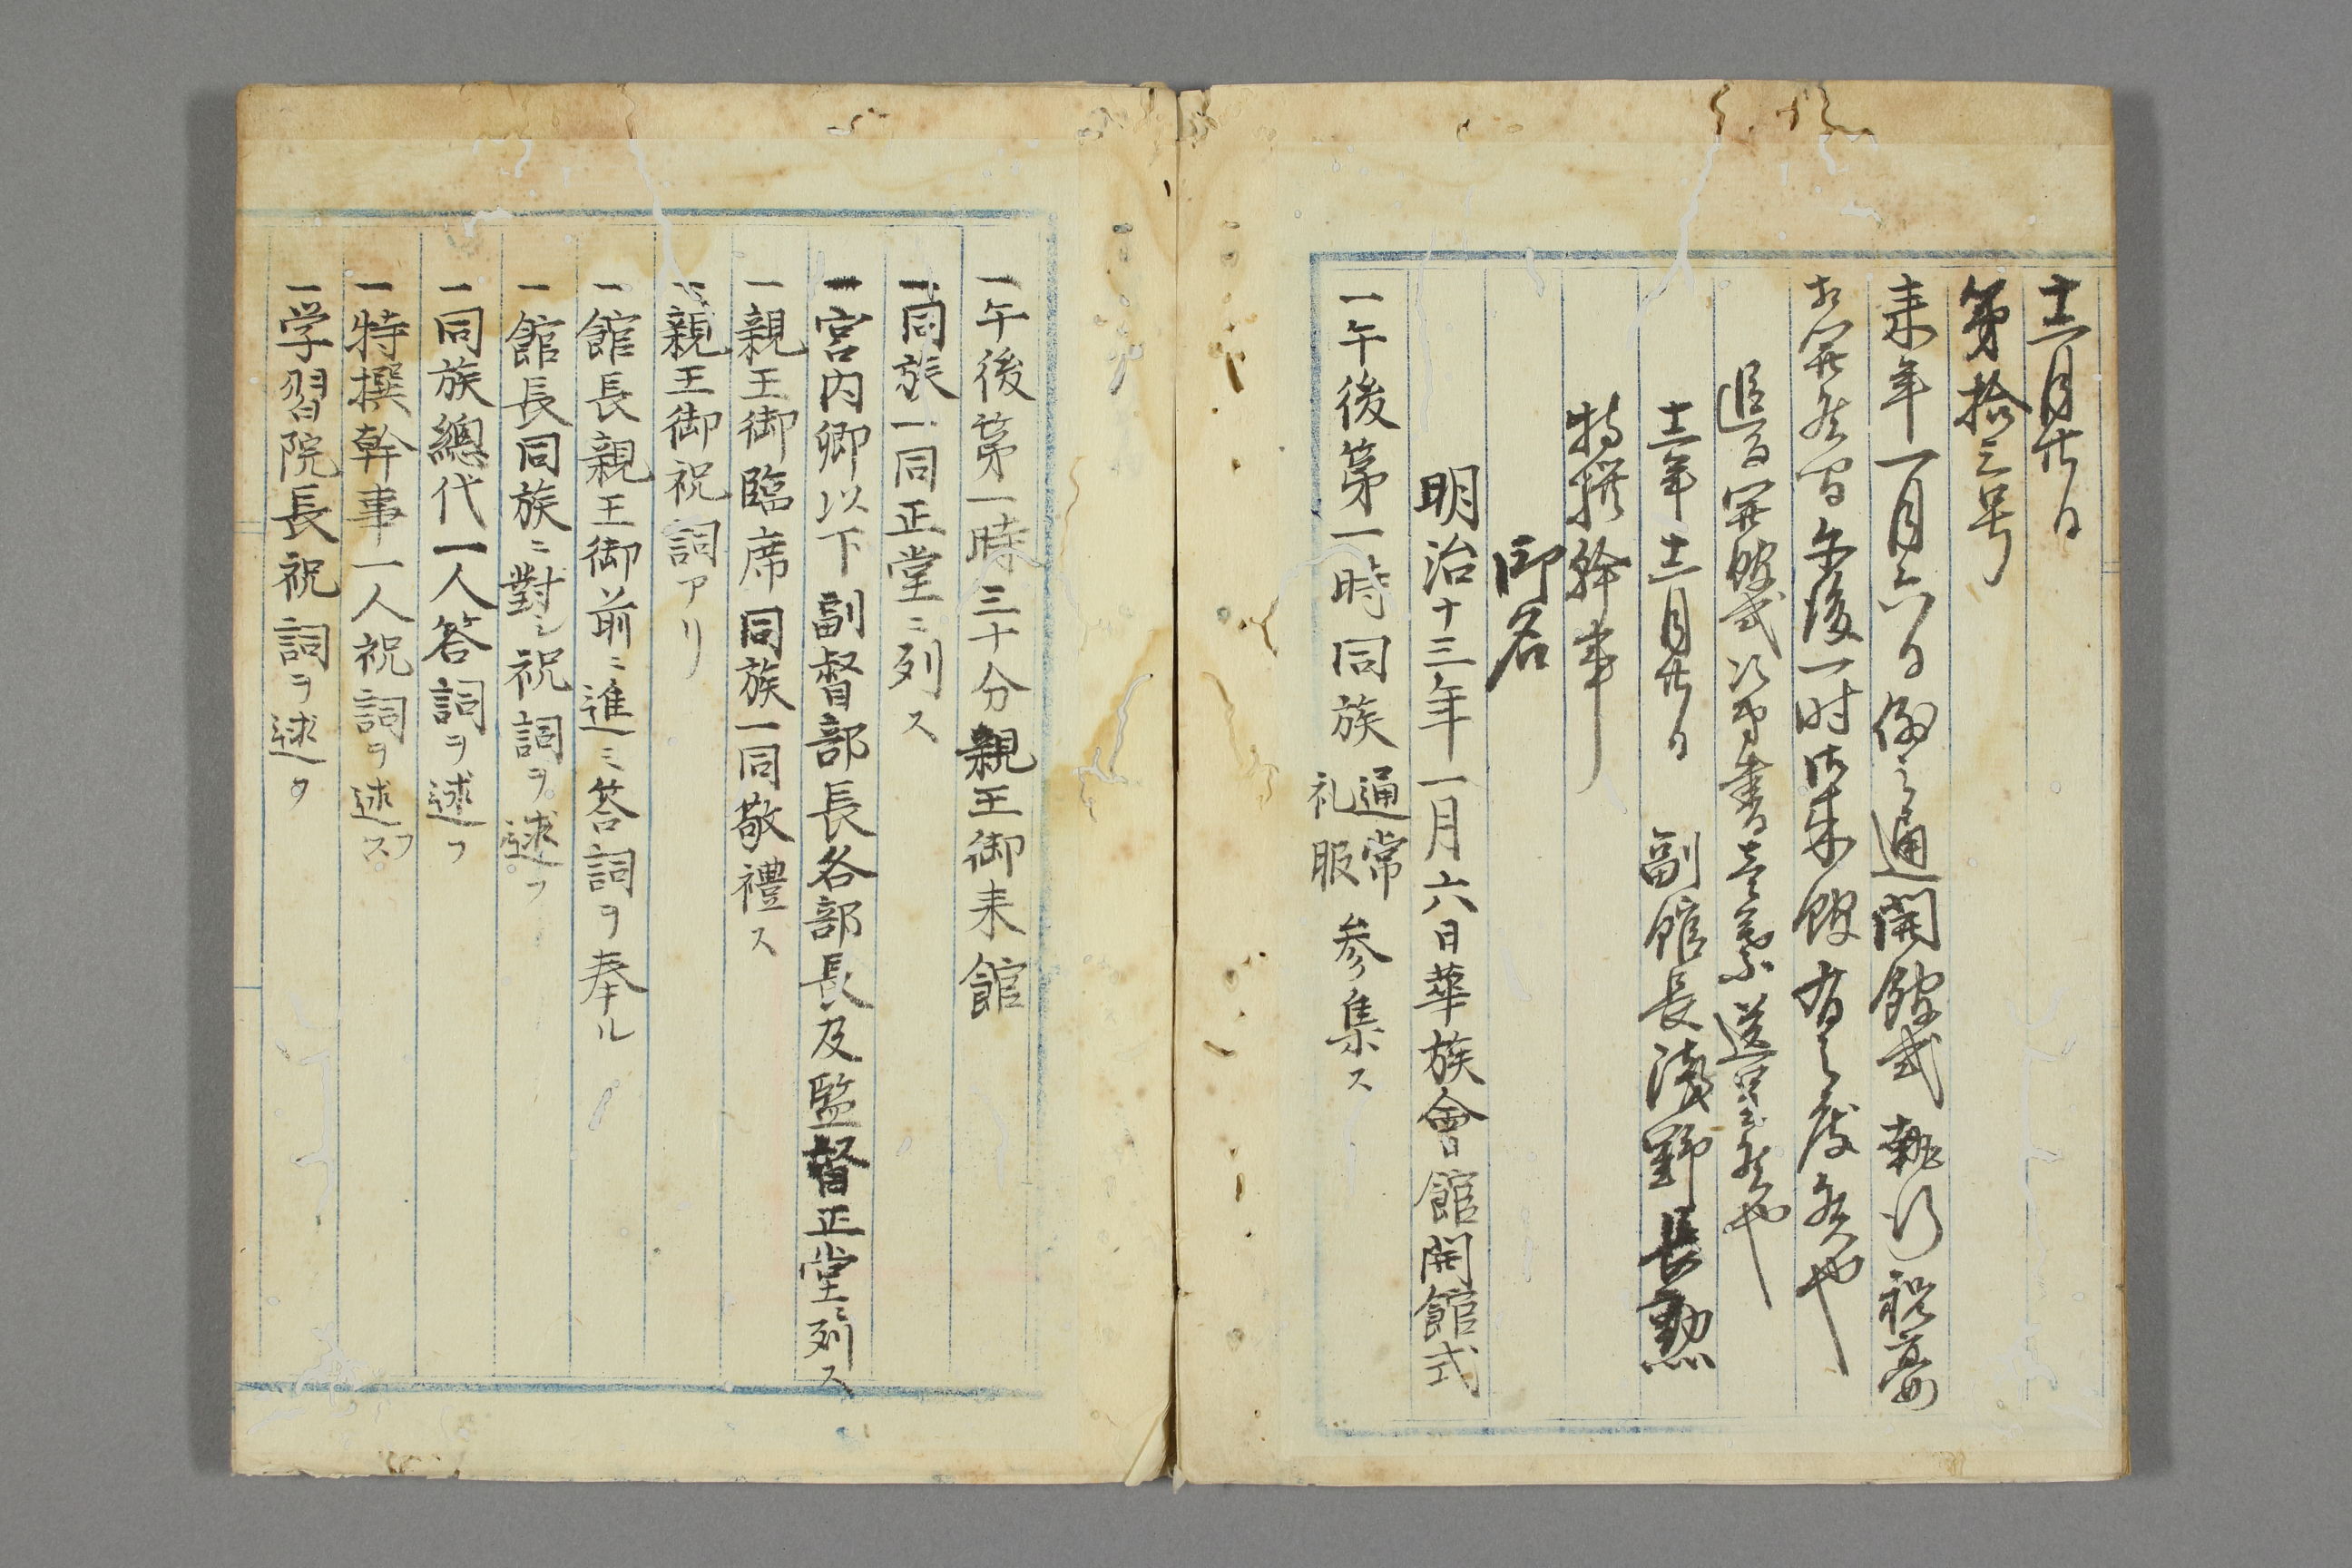 十二月廿日
第拾三号
来年一月六日例之通開館式執行祝宴
相開候間午後一時御来館有之度候也
追而開館式次第書壱葉送呈候也
十二年十二月廿日 副館長浅野長勲
特撰幹事
御名
明治十三年一月六日華族會館開館式
一午後第一時同族通常礼服参集ス
一午後第一時三十分親王御来館
一同族一同正堂ニ列ス
一宮内卿以下副督部長各部長及監督正堂ニ列ス
一親王御臨席同族一同敬禮ス
一親王御祝詞アリ
一館長親王御前ニ進ミ答詞ヲ奉ル
一館長同族ニ對シ祝詞ヲ述フ
一同族總代一人答詞ヲ述フ
一特撰幹事一人祝詞ヲ述フ
一学習院長祝詞ヲ述フ